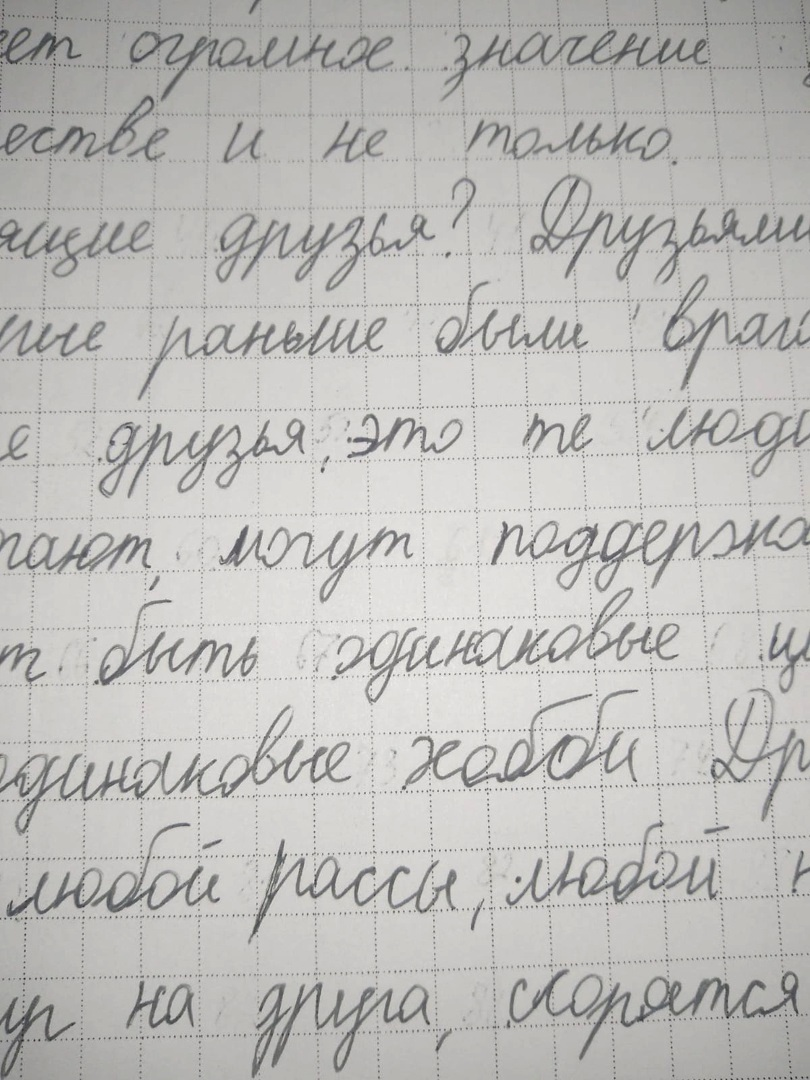 ет огромное значение
естве и не только.
ящие друзья? Друзьями
раньше были враг
е друзья, это те люди
ают, могут поддержа
т быть одинаковые це
одинаковые хобби Др
любой рассы, любой н
уг на друга, скорятся